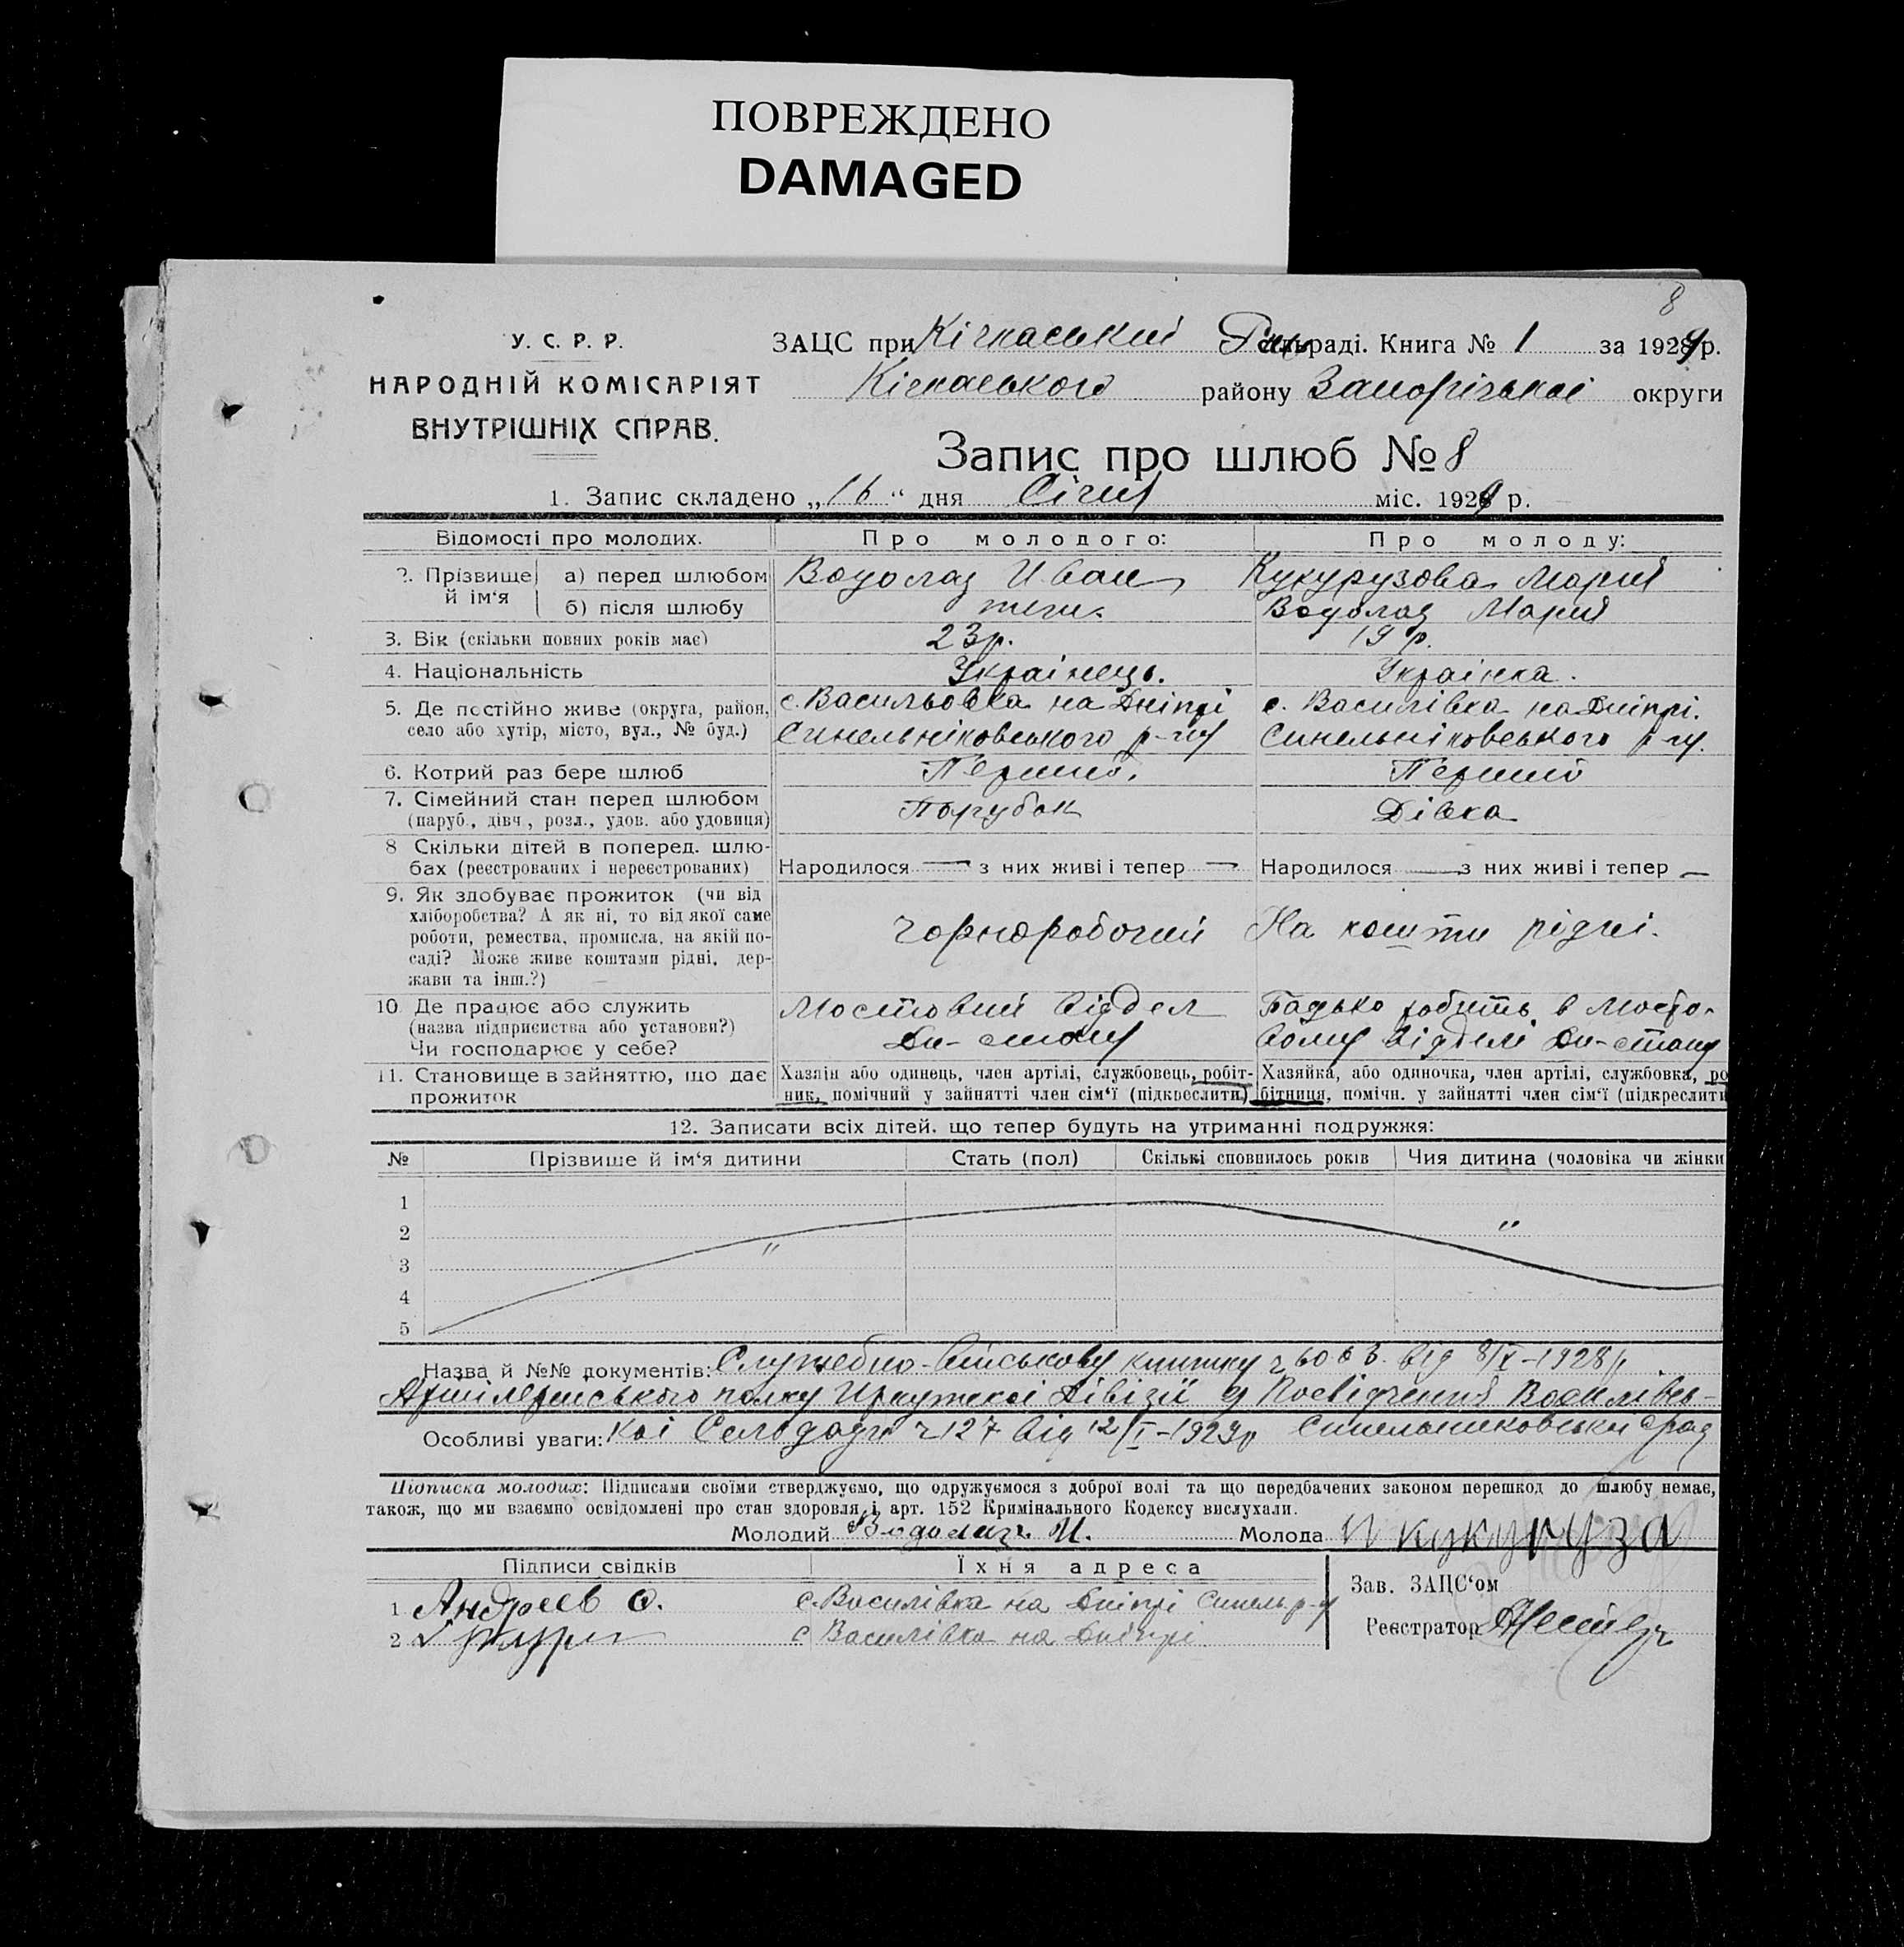 ПОВРЕЖДЕНО
DAMAGED
8
У. С. Р. Р.
НАРОДНІЙ КОМІСАРІЯТ
ВНУТРІШНІХ СПРАВ.
ЗАЦС при Кічкаський раді. Книга № 1 за 1929 р.
Кічкаського району Запорізької округи
Запис про шлюб № 8
1. Запис складено „16“ дня Січня міс. 1929 р.
Відомості про молодих. Про молодого: Про молоду:
2. Прізвище й ім‘я а) перед шлюбом Водолаз Иван Кукурузова Мария
б) після шлюбу теж. Водолаз Мария
3. Вік (скільки повних років має) 23 р. 19 р.
4. Національність Українець. Українка.
5. Де постійно живе (округа, район, с. Васильовка на Дніпрі с. Василівка на Дніпрі.
село або хутір, місто, вул., № буд.) Синельніковського р-ну Синельніковського р-ну.
6. Котрий раз бере шлюб Перший. Перший
7. Сімейний стан перед шлюбом Порубок Дівка
(паруб., дівч., розл., удов. або удовиця)
8 Скільки дітей в поперед. шлю-
бах (реєстрованих і нереєстрованих) Народилося — з них живі і тепер — Народилося — з них живі і тепер —
9. Як здобуває прожиток (чи від
хліборобства? А як ні, то від якої саме
роботи, ремества, промисла, на якій по- Чорноробочий На кошти рідні.
саді? Може живе коштами рідні, дер-
жави та інш.?)
10 Де працює або служить Мостовий відден Батько робить в мосто-
(назва підприємства або установи?) Дн-стану вому відделі Дн-стану
Чи господарює у себе?
11. Становище в зайняттю, що дає Хазяїн або одинець, член артілі, службовець, робіт- Хазяйка, або одиночка, член артілі, службовка, ро
прожиток ник, помічний у зайнятті член сім‘ї (підкреслити) бітниця, помічн. у зайнятті член сім‘ї (підкреслити
12. Записати всіх дітей, що тепер будуть на утриманні подружжя:
№ Прізвище й ім‘я дитини Стать (пол) Скількі сповнилось років Чия дитина (чоловіка чи жінки
1
2 " "
3
4
5
Назва й №№ документів: Служебно-військову книжку від 8/X-1928 р
Артілерійського полку Иркутскої Дівізії Посвідчення Василівсь-
Особливі уваги: кої ч 127 від 12/I-1929 р
Підписка молодих: Підписами своїми стверджуємо, що одружуємося з доброї волі та що передбачених законом перешкод до шлюбу немає,
також, що ми взаємно освідомлені про стан здоровля і арт. 152 Кримінального Кодексу вислухали.
Молодий Водолазъ И. Молода кукуруза
Підписи свідків Їхня адреса
1 Андреев О. с. Василівка на Дніпрі Синель р-у
2 с Василівка на Дніпрі
Зав. ЗАЦС‘ом
Реєстратор